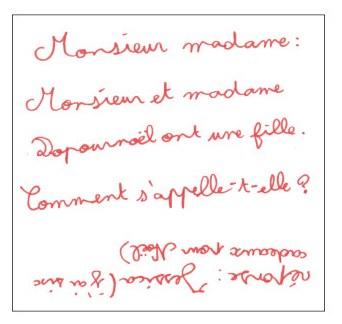 Monsieur madame :
Monsieur et madame
Dopournoël ont une fille.
Comment s'appelle-t-elle ?
réponse : Jessica (j'ai six
cadeaux pour Noël)